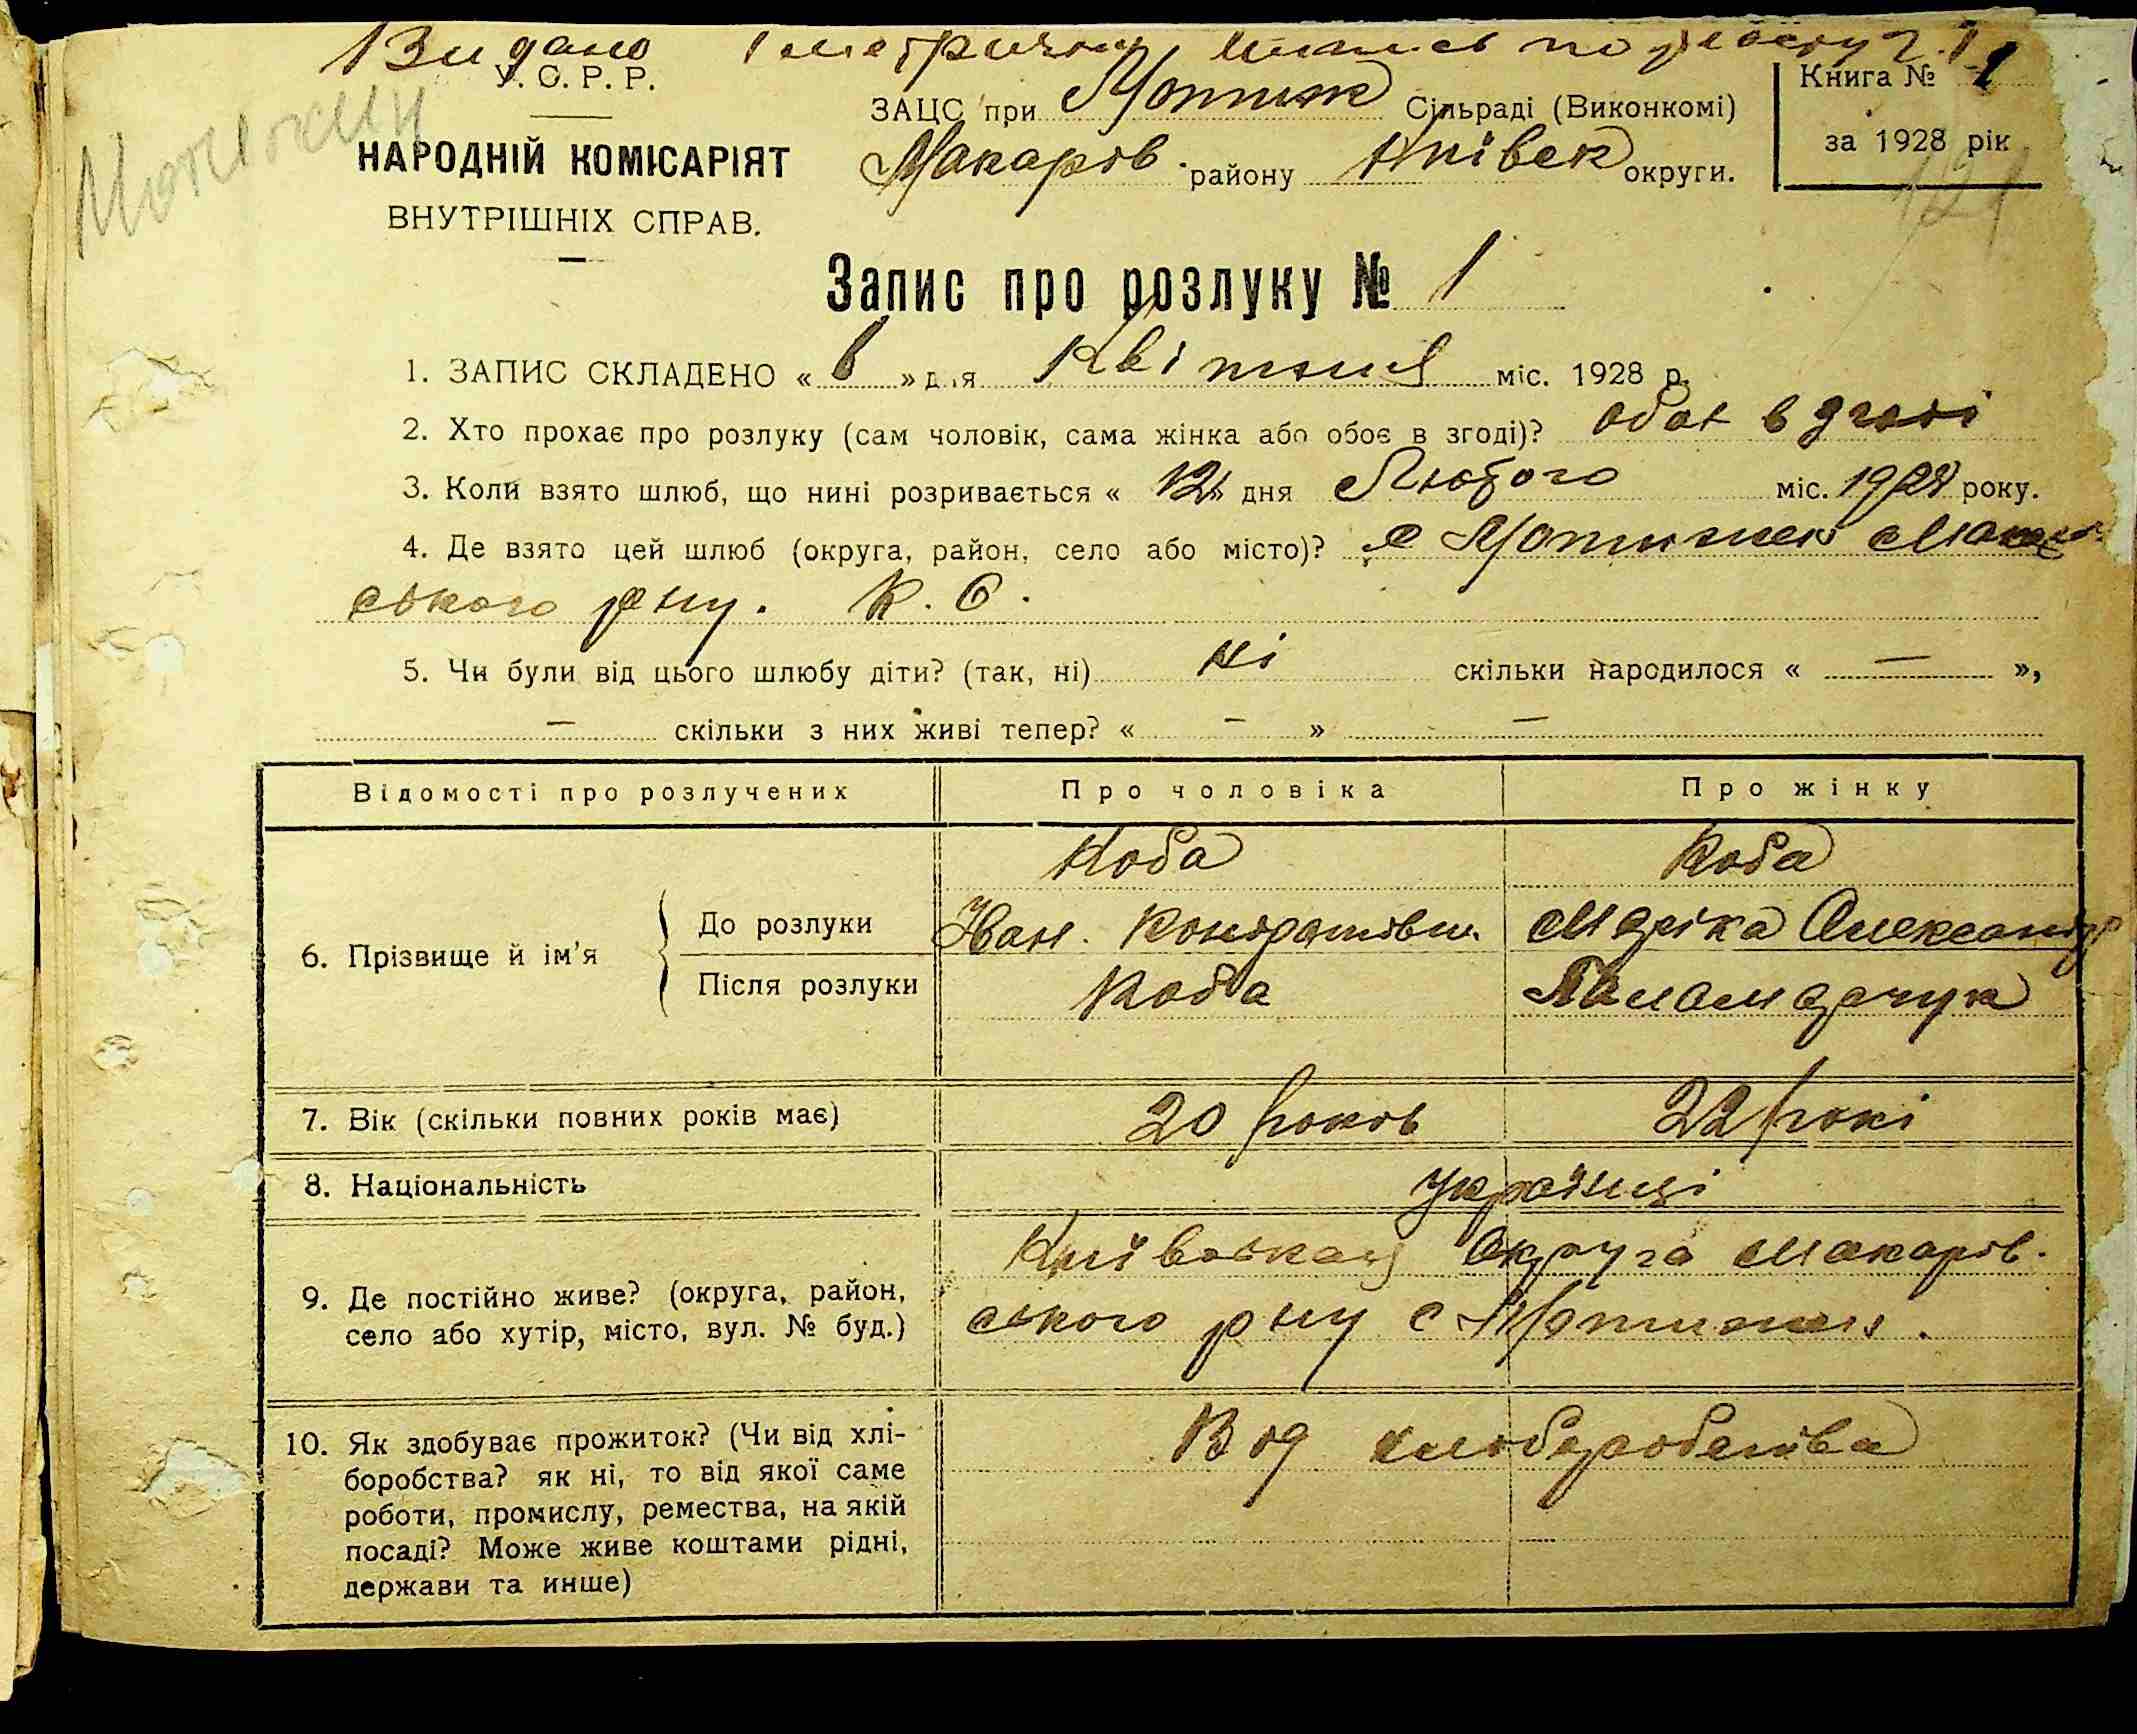 Видано
У. С. Р. Р.
Мотижин
НАРОДНІЙ КОМІСАРІЯТ
ВНУТРІШНІХ СПРАВ.
ЗАЦС при Мотиж Сільраді (Виконкомі)
Макарів. району Київськ округи.
Книга № 1
за 1928 рік
121
Запис про розлуку № 1
1. ЗАПИС СКЛАДЕНО « 6 » дня Квітня міс. 1928 р.
2. Хто прохає про розлуку (сам чоловік, сама жінка або обоє в згоді)? обоє в згоді
3. Коли взято шлюб, що нині розривається « 12 » дня Лютого міс. 1928 року.
4. Де взято цей шлюб (округа, район, село або місто)? с Мотижин Макарів
ського рну. К. О.
5. Чи були від цього шлюбу діти? (так, ні) ні скільки народилося « — »,
— скільки з них живі тепер? « — » —
Відомості про розлучених Про чоловіка Про жінку
6. Прізвище й ім'я
До розлуки
Коба Коба
Іван. Кондратович. Маріка Олександр
Після розлуки Коба Паламарчук
7. Вік (скільки повних років має) 20 років 22 роки
8. Національність Українці
9. Де постійно живе? (округа, район,
село або хутір, місто, вул. № буд.)
Київська Округа Макарів.
ського рну с Мотижин.
10. Як здобуває прожиток? (Чи від хлі-
боробства? як ні, то від якої саме
роботи, промислу, ремества, на якій
посаді? Може живе коштами рідні,
держави та инше)
Від хліборобства